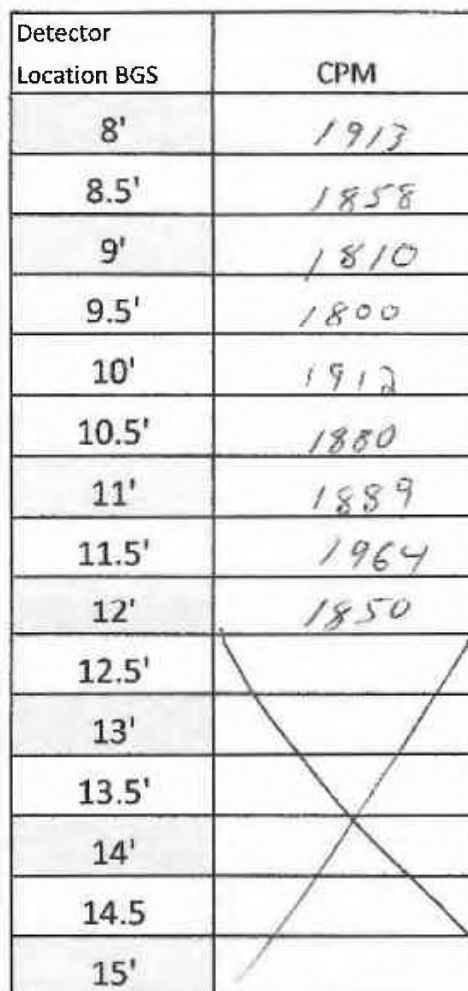 Detector
Location BGS CPM
8' 1913
8.5' 1858
9' 1810
9.5' 1800
10' 1912
10.5' 1880
11' 1889
11.5' 1964
12' 1850
12.5'
13'
13.5'
14'
14.5
15'